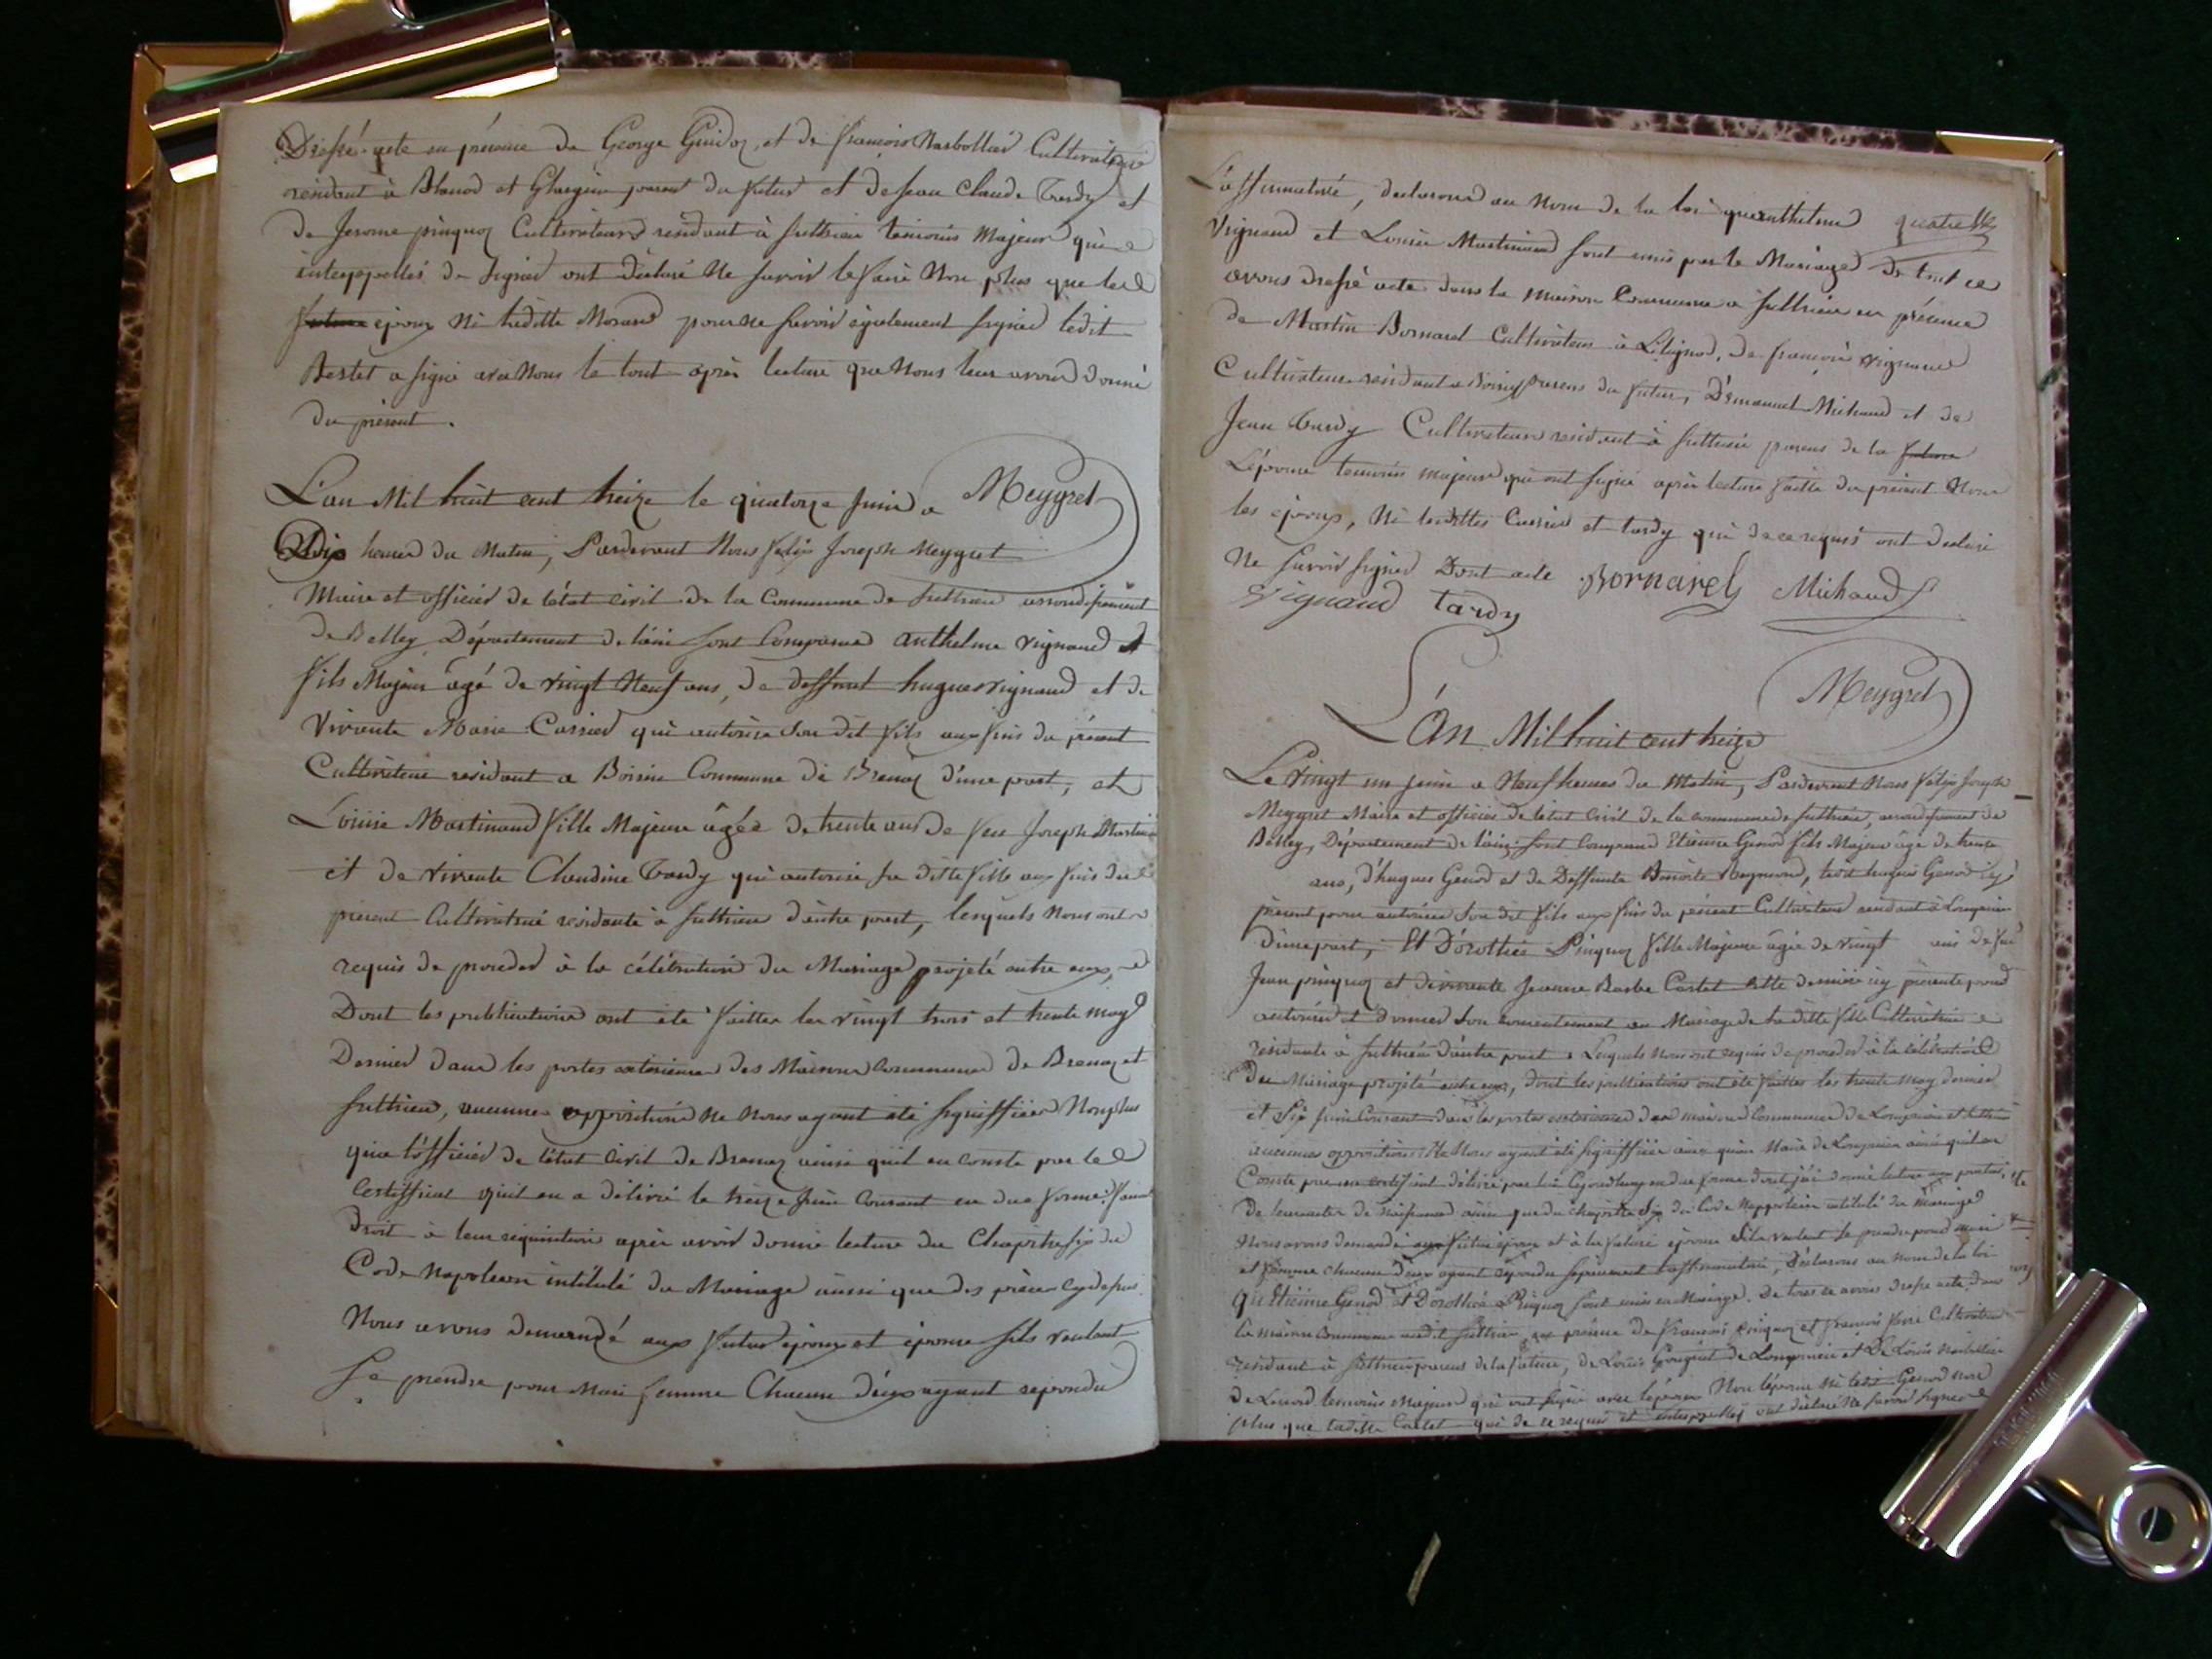 Dressé acte en présence de George Guidoz, et de françois Narbollier Cultivateurs
résidant à Blanod et parent du futur et de Jean Claude Tardy et
de Jerome pinquoz Cultivateurs residant à Suthrieu temoins Majeurs qui
interpellés de Signer ont déclaré Ne Savoir le faire Non plus que les
époux Ni Morand pour ne Savoir également Signer ledit
Bestet a Signé avec Nous le tout après lecture que Nous leur avons donné
du présent.
Meygret
L'an Mil huit cent treize le quatorze Juin a
Dix heures du Matin, Pardevant Nous felix Joseph Meygret
Maire et officier de l'état civil de la Commune de Suthrieu arrondissement
de Belley Département de l'ain Sont Comparus Anthelme Vignand
fils Majeur âgé de vingt Neuf ans, de deffunt hugues vignand et de
Vivante Marie Cassier qui autorise Son dit fils aux fins du présent
Cultivateur residant a Boissin Commune de Brenaz d'une part, et
Louise Martinand fille Majeure âgée de trente ans de feu Joseph Martin
et de vivante Claudine Tardy qui autorise Sa ditte fille aux fins du
présent Cultivatrice residante à Suthrieu d'autre part, lesquels Nous ont
requis de proceder à la célébration du Mariage projeté entre eux,
Dont les publications ont été faittes les vingt trois et trente may
Dernier dans les portes exterieures des Maisons Communes de Brenaz et
Suthrieu, aucunes opposition ne Nous ayant été Signiffiées Non plus
qu'a l'officier de l'état Civil de Brenaz ainsi qu'il en conste par le
Certifficat qu'il en a délivré le treize Juin Courant en due forme, faisant
droit à leur requisition après avoir donné lecture du Chapitre Six du
Code Napoleon intitulé du Mariage ainsi que des pièces cy dessus
Nous avons demandé aux futur époux et épouse S'ils veulent
Se prendre pour Mari femme Chacun d'eux ayant repondu
L'affirmative, declarons au Nom de la loi qu'anthelme
Vignand et Louise Martinand Sont unis par le Mariage De tout ce
avons dressé acte dans la maison Commune a Suthrieu en présence
de Martin Bornarel Cultivateur à Lilignod, de françois Vignand
Cultivateur résidant a Boissin parens du futur, D'emanuel Michaud et de
Jean Tardy Cultivateurs residant à Suthrieu parens de la future
L'épouse temoins majeurs qui ont Signé après lecture faitte du présent Non
les époux, Ni lesdittes Cassier et tardy qui de ce requis ont declaré
Ne Savoir Signer Dont acte Bornarel Michaud
Vignand Tardy
Meygret
L'An Mil huit cent treize
Le Vingt un Juin a Neuf heures du Matin, Pardevant Nous felix Joseph
Meygret Maire et officier de l'état Civil de la commune de Suthrieu, arrondissement de
Belley, Département de l'ain, Sont Comparus Etienne Genod fils Majeur âgé de trente
ans, d'hugues Genod et de Deffunte Benoite Reymond, ledit hugues Genod icy
présent pour autoriser Son dit fils aux fins du présent Cultivateur residant à Lompnieu
d'une part, Et Dorothée Pinquoz fille Majeure âgée de vingt ans de feu
Jean pinquoz et de vivante Jeanne Barbe Castet cette derniere icy présente pour
autoriser et donner Son consentement au Mariage de Sa ditte fille Cultivatrice
résidante à Suthrieu d'autre part. Lesquels Nous ont requis de proceder à la célébration
du Mariage projeté entre eux, dont les publications ont été faittes les trente May dernier
et Six Juin Courant dans les portes exterieures des maisons Communes de Lompnieu et Suthrieu
aucunes oppositions Ne Nous ayant été Signiffiées ainsi qu'au Maire de Lompnieu ainsi qu'il en
Conste par un certificat délivré par lui en due forme dont j'ai donné lecture aux parties,
De leurs actes de Naissance ainsi que du chapitre Six du Code Nappoleon intitulé du Mariage
Nous avons demandé aux futur époux et à la future épouse S'ils veulent Se prendre pour mari
et femme chacun d'eux ayant repondu Séparement l'affirmative, Déclarons au Nom de la loi
Qu'Etienne Genod Et Dorothée Pinquoz Sont unis en Mariage. De tous ce avons dressé acte dans
la maison Commune audit Suthrieu en présence de françois pinquoz et françois Cultivateurs
residant à Suthrieu parens de la future, de Louis de Lompnieu et De Louis
temoins Majeurs qui ont Signé avec l'époux Non l'épouse Ni ledit Genod Non
plus que laditte Castet qui de ce requis et interpellés ont déclaré Ne Savoir Signer